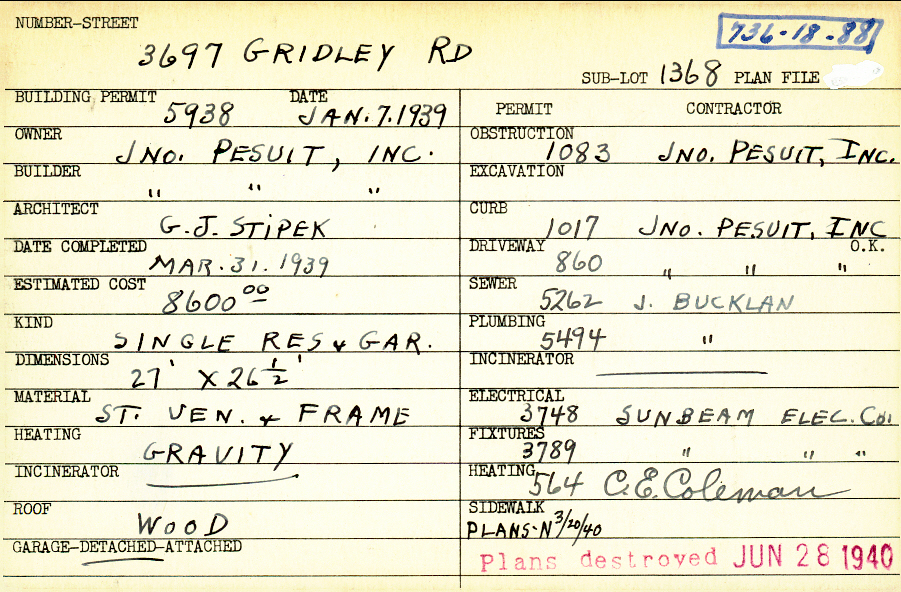 NUMBER-STREET
3697 GRIDLEY RD
736-18-88
SUB-LOT 1368 PLAN FILE
BUILDING PERMIT 5938 DATE JAN. 7. 1939
OWNER JNO. PESUIT, INC.
BUILDER " " "
ARCHITECT G. J. STIPEK
DATE COMPLETED MAR. 31. 1939
ESTIMATED COST 8600 00
KIND SINGLE RES & GAR.
DIMENSIONS 27' X 26 1/2'
MATERIAL ST. VEN. & FRAME
HEATING GRAVITY
INCINERATOR
ROOF WOOD
GARAGE-DETACHED-ATTACHED
PERMIT CONTRACTOR
OBSTRUCTION 1083 JNO. PESUIT, INC.
EXCAVATION
CURB 1017 JNO. PESUIT, INC
DRIVEWAY 860 " " " O.K.
SEWER 5262 J. BUCKLAN
PLUMBING 5494 "
INCINERATOR
ELECTRICAL 3748 SUNBEAM ELEC. CO.
FIXTURES 3789 " " "
HEATING 564 C. E. Coleman
SIDEWALK
PLANS-N 3/20/40
Plans destroyed JUN 28 1940